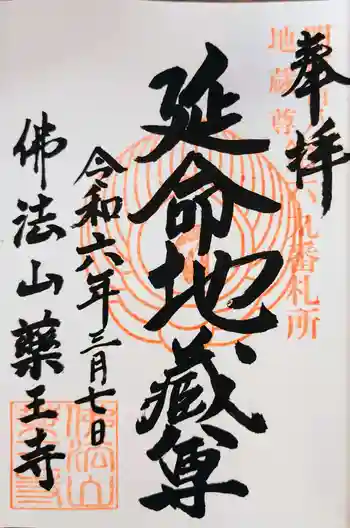 奉拝
延命地蔵尊
令和六年三月七日
佛法山薬王寺
地蔵尊
番札所